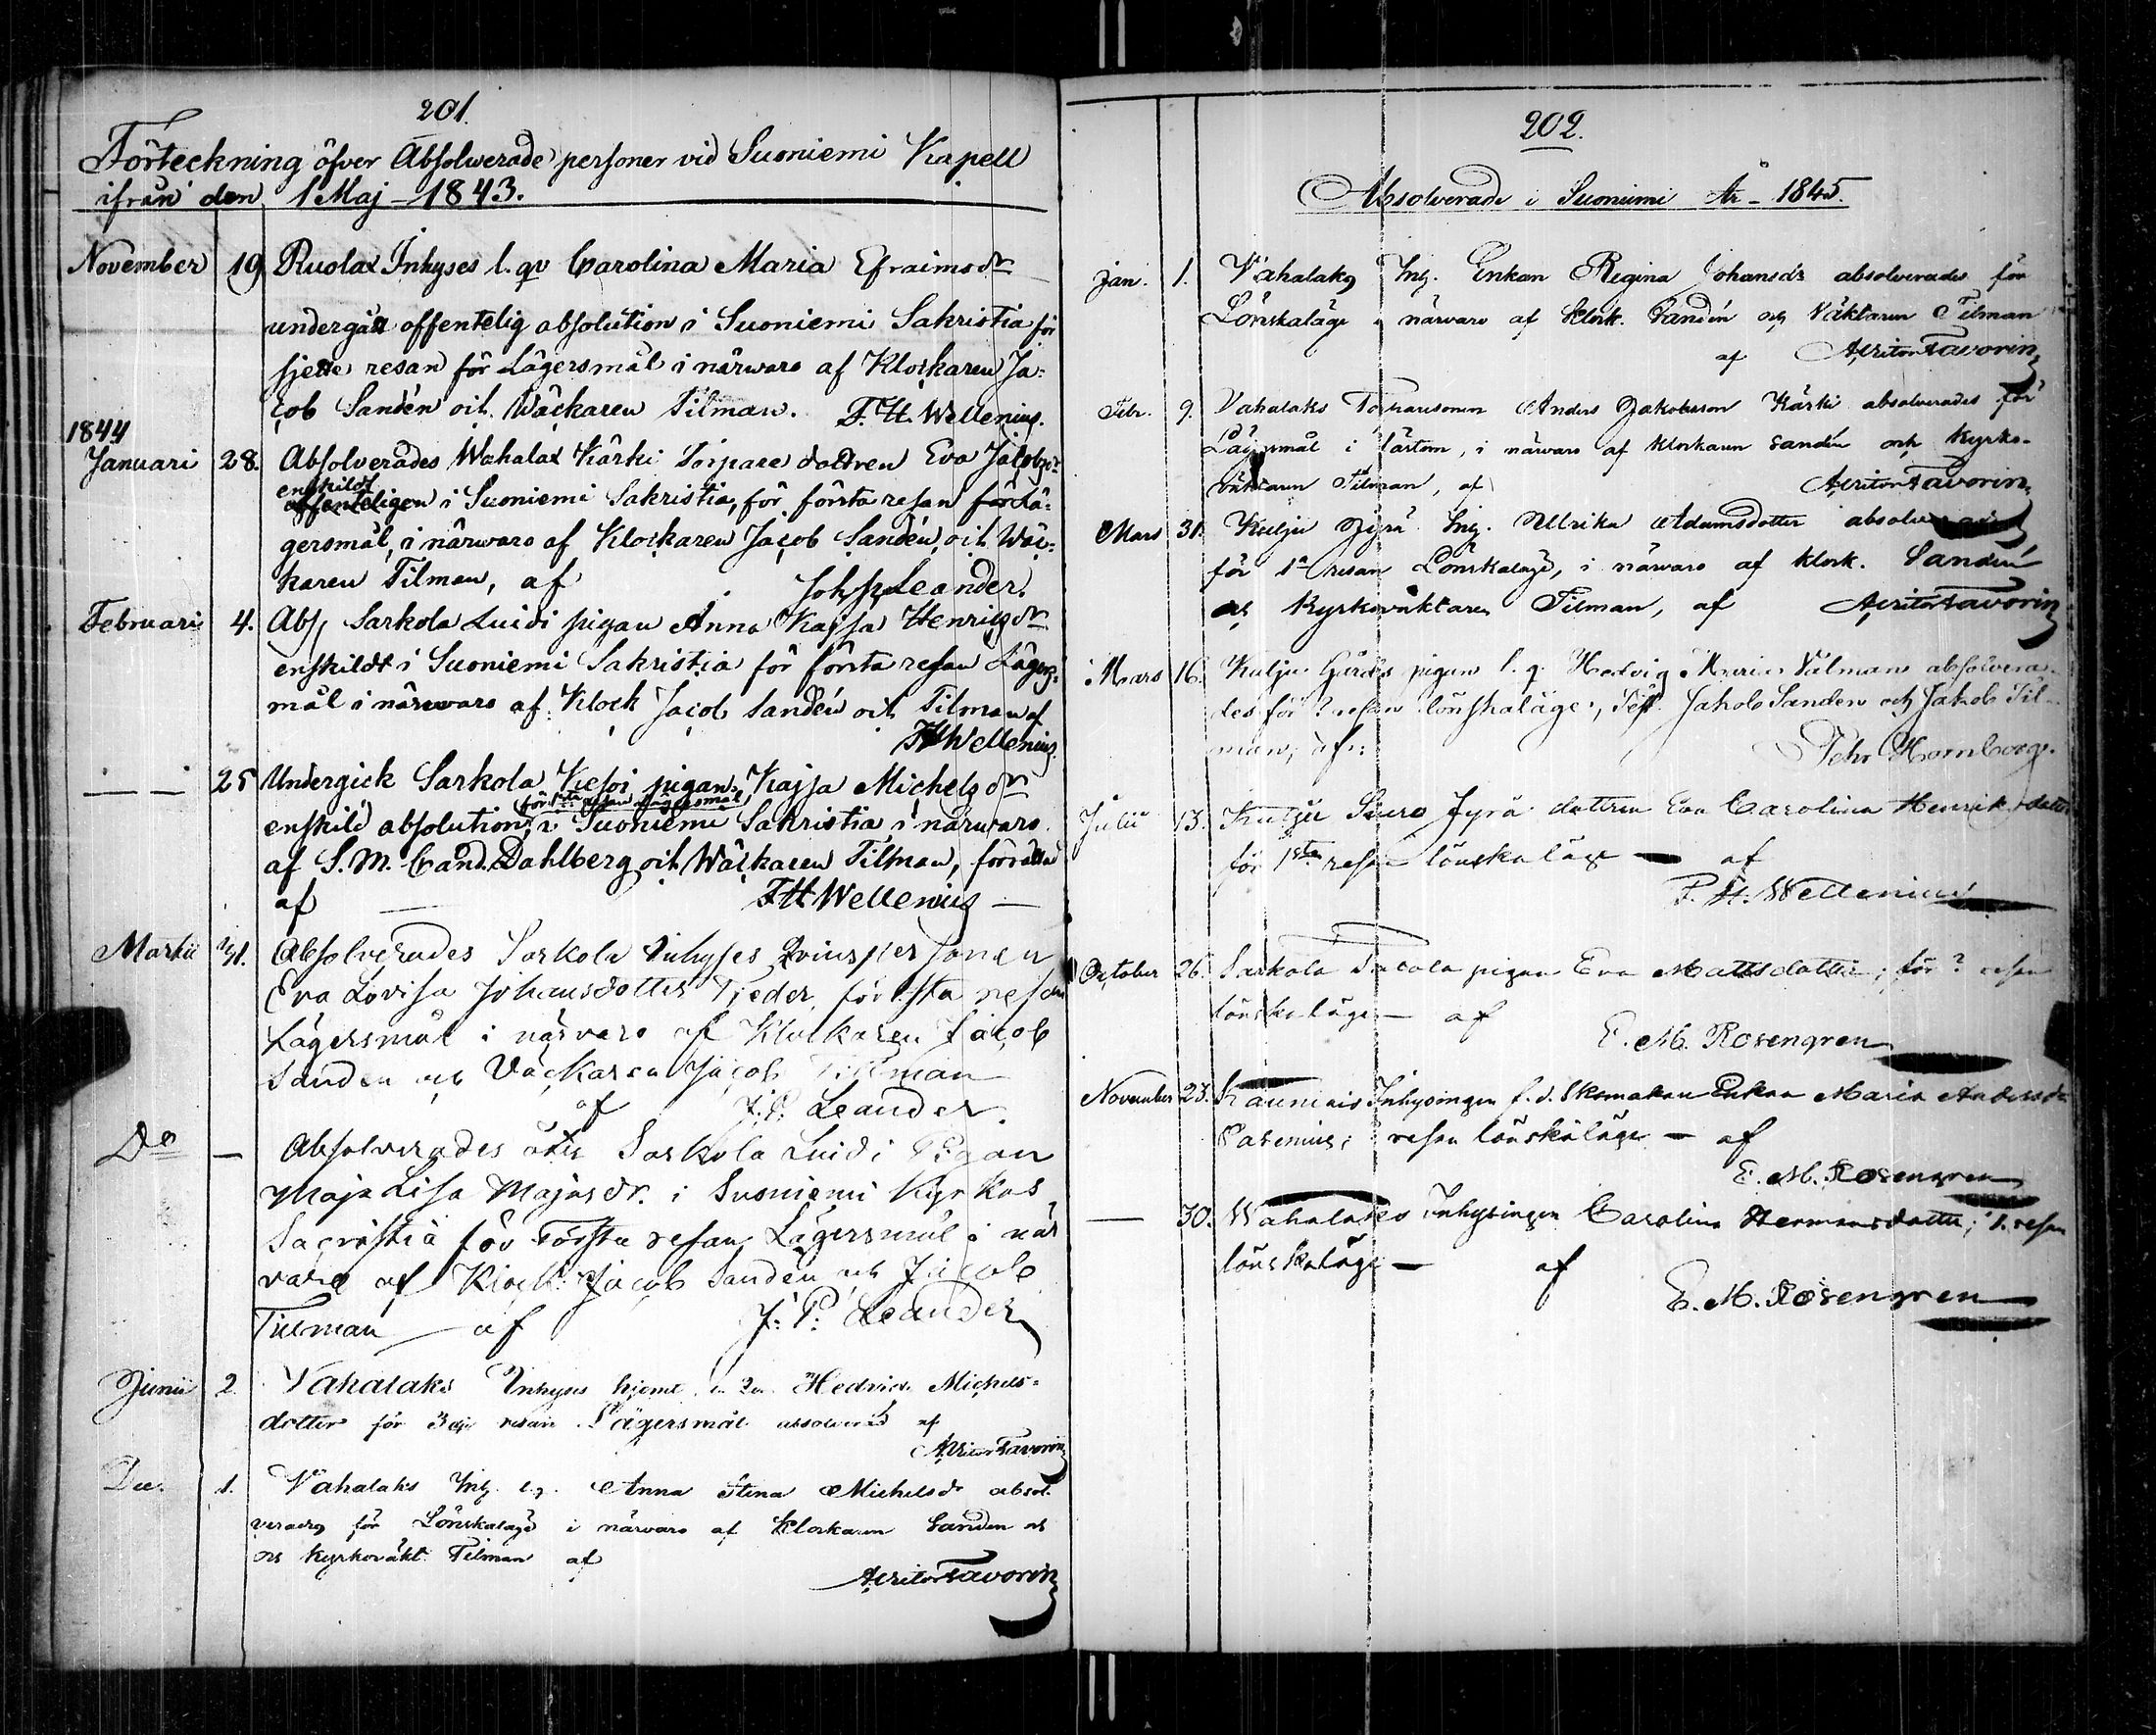 201.
Förteckning öfver Absolverade personer vid Suoniemi Kapell
ifrån den 1 Maj 1843.
November 19 Ruolax Inhyses l. qv Carolina Maria Efraimsdr
undergått offentelig absolution i Suoniemi Sakristia för
sjette resan för Lägersmål i närwaro af Klockaren Ja:
cob Sandén och Wäckaren Tilman. F. H. Wellenius.
1844
Januari 28. Absolverades Wahalax Kärki Torpare dottren Eva Jacobsdr
enskildt
offenteligen i Suoniemi Sakristia, för första resan för Lä:
gersmål, i närwaro af Klockaren Jacob Sandén, och Wäc:
karen Tilman, af Joh. P. Leander.
Februari 4. Abs. Sarkola Luidi pigan Anna Kajsa Henricsdr
enskildt i Suoniemi Sakristia för första resan Lägers:
mål i närwaro af Klock Jacob Sandén och Tilman af
FHWellenius.
— — 25 Undergick Sarkola pigan Kajsa Michelsdr
första resan Lägersmål
enskild absolution i Suoniemi Sakristia i närwaro
af S. M. Cand. Dahlberg och Wäckaren Tilman, förrättad
af — FHWellenius —
Martii 31. Absolverades Sarkola Inhyses Qvinspersonen
Eva Lovisa Johansdotter Tjeder för 1sta resan
Lägersmål i närvaro af Klockaren Jacob
Sanden och Väckaren Jacob Tillman
af J. P. Leander.
Do — Absolverades Sarkola Luidi Pigan
Maja Lisa Majasdr. i Suoniemi Kyrkas
Sacristia för Första resan Lägersmål i när
varo af Klock: Jacob Sandén och Jacob
Tilman — af J: P: Leander
Junii 2 Vahalaks Inhyses Hedvig Michels=
dotter för 3dje resan Lägersmål absolverad af
Favorin
Dec. 1. Vahalaks Inh. Anna Stina Michelsdr absol
verades för Lönskaläge i närvaro af Klockaren Sanden och
och Kyrkoväkt. Tilman af
Favorin
202.
Absolverade i Suoniemi År 1845.
Jan. 1. Vahalaks Inh. Enkan Regina Johansdr absolverades för
Lönskaläge i närvaro af Klock. Sandén och Väktaren Tilman
af Favorin
Febr. 9. Vahalaks Torparesonen Anders Jakobsson Kärki absolverades för
Lägersmål i närvaro af Klockaren Sandén och Kyrko-
väktaren Tilman, af Favorin.
Mars 31. Kulju Jyrä Inh. Ullrika Adamsdotter
för 1a resan Lönskaläge, i närvaro af Klock. Sandén
och Kyrkoväktaren Tilman, af Favorin
Mars 16. Kulju pigan l. q. Hedvig Maria Vilman absolvera-
des för ? resan lönskaläge, Jakob Sanden och Jakob Til-
man, af: Pehr Homborg.
Julii 13. Kulju Suro Jyrä dottren Eva Carolina Henriksdotter
för 1sta resan lönskaläge — af
F. H. Wellenius
October 26. Sarkola pigan Eva Mattsdotter; för ? resan
lönskaläge — af
E. M. Rosengren
November 23. Kauniais Inhysingen f. d. Skomakare Enkan Maria Andersdr
resan lönskaläge — af
E. M. Rosengren
— 30. Wahalaks Inhysingen Carolina Hermansdotter; 1. resan
lönskaläge — af
E. M. Rosengren